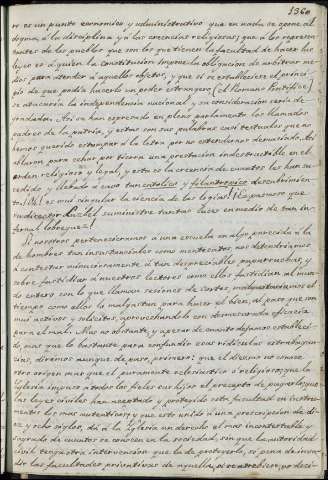 1360
ro es un punto economico y administrativo que en nada se opone al
dogma, á la disciplina y á las creencias religiosas; que á los represen-
tantes de los pueblos que son los que tienen la facultad de hacer las
leyes es á quien la constitucion impone la obligacion de arbitrar me-
dios para atender á aquellos objetos, y que si se estableciere el princi-
pio de que podia hacerlo un poder extrangero (el Romano Pontifice)
se atacaria la independencia nacional y su consideracion seria de-
gradada. Asi se han expresado en pleno parlamento los llamados
padres de la patria, y estas son sus palabras casi testuales que no
hemos querido estampar á la letra por no estendernos demasiado. Asi
para echar por tierra una prestacion indestructible en el
orden religioso y legal, y esta es la creencia de cuantos les han su-
cedido y llevado á cabo tan catolico y filantropico descubrimien-
to. ¡Oh! es mui singular la ciencia de las logias!
suministre tantas luces en medio de tan in-
fernal lobreguez!
Si nosotros perteneciesemos á una escuela en algo parecida á la
de hombres tan insustanciales como mentecatos, nos detendriamos
á contestar minuciosamente á tan despreciables paparruchas, y
sobre fastidiar á nuestros lectores como ellos fastidian al mun-
do entero con lo que llaman sesiones de cortes, malgastariamos el
tiempo como ellos lo malgastan para hacer el bien, al paso que son
mui activos y solicitos, aprovechandolo con desmesurada eficacia
para el mal. Mas no obstante, y apesar de cuanto dejamos estableci-
do, mas que lo bastante para confundir esas ridiculas extravagan-
cias, diremos aunque de paso, primero: que el diezmo no conoce
otro origen mas que el puramente eclesiastico ó religioso; que la
Iglesia impuso á todos los fieles sus hijos el precepto de pagarlo; que
las leyes civiles han aceptado y protegido esta facultad en instru-
mentos los mas autenticos; y que esto unido á una prescripcion de di-
ez y ocho siglos, dá á la Iglesia un derecho el mas incontestable y
sagrado de cuantos se conocen en la sociedad, sin que la autoridad
civil tenga otra intervencion que la de protegerlo, so pena de inva-
dir las facultades privativas de aquella,